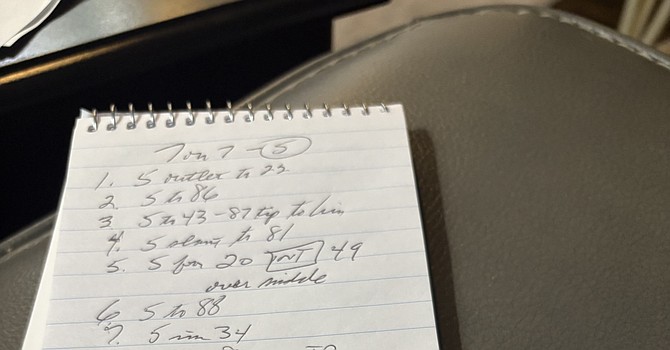 7 on 7 - 5
1. 5 outlet to 23
2. 5 to 86
3 5 to 43 - 87 tip to him
4. 5 to 81
5. 5 for 20 INT 49
over middle
6 5 to 88
7. 5 inc 34